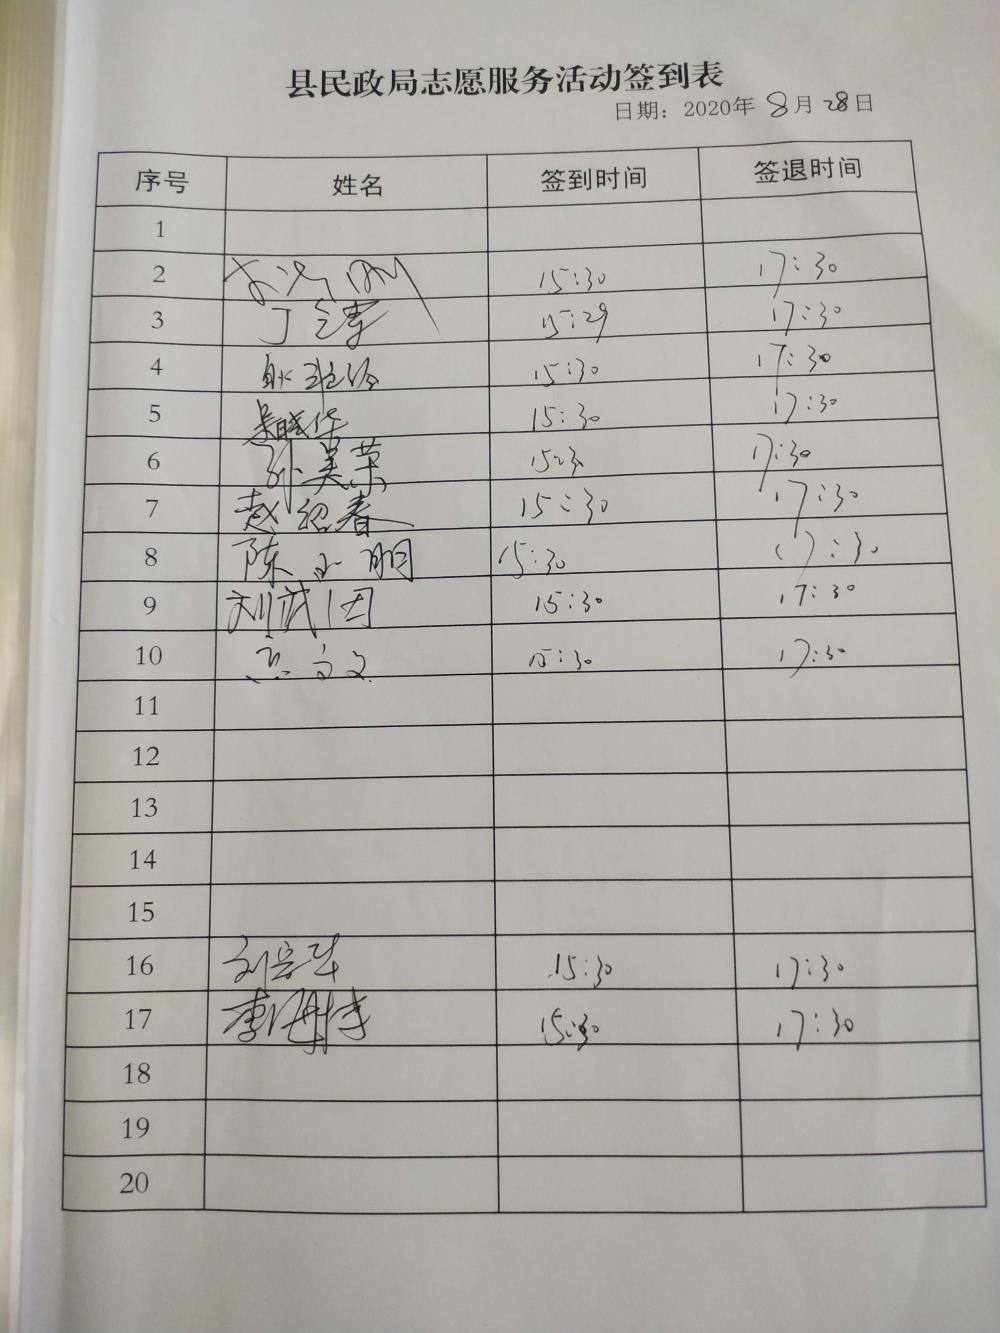 县民政局志愿服务活动签到表
日期：2020年 8月 28日
序号 姓名 签到时间 签退时间
1
2 15:30 17:30
3 15:29 17:30
4 15:30 17:30
5 15:30 17:30
6 孙美荣 17:30
7 赵绍春 15:30 17:30
8 陈小明 15:30 17:30
9 刘武国 15:30 17:30
10 15:30 17:30
11
12
13
14
15
16 刘宗军 15:30 17:30
17 15:30 17:30
18
19
20